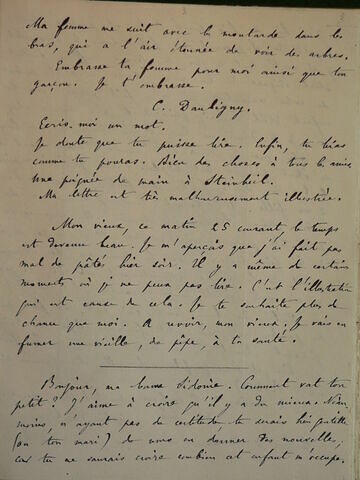 Ma femme me suit avec la moutarde dans les
bras, qui a l'air étonnée de voir des arbres.
Embrasse ta femme pour moi ainsi que ton
garçon. Je t'embrasse.
C. Daubigny.
Ecris-moi un mot.
Je doute que tu puisse lire. Enfin, tu liras
comme tu pouras. Bien des choses à tous les amis,
une poignée de main à Steinheil.
Ma lettre est très malheureusement illustrée.
Mon vieux, ce matin 25 courant, le temps
est devenu beau. Je m'aperçois que j'ai fait pas
mal de pâtés hier soir. Il y a même de certains
moments où je ne peux pas lire. C'est l'illustration
qui est cause de cela. Je te souhaite plus de
chance que moi. A revoir, mon vieux. Je vais en
fumer une vieille, de pipe, à ta santé.
Bonjour, ma bonne Sidonie. Comment va ton
petit ? J'aime à croire qu'il y a du mieux. Néan-
moins, n'ayant pas de certitude, tu serais bien gentille
(ou ton mari) de nous en donner des nouvelles,
car tu ne saurais croire combien cet enfant m'occupe.